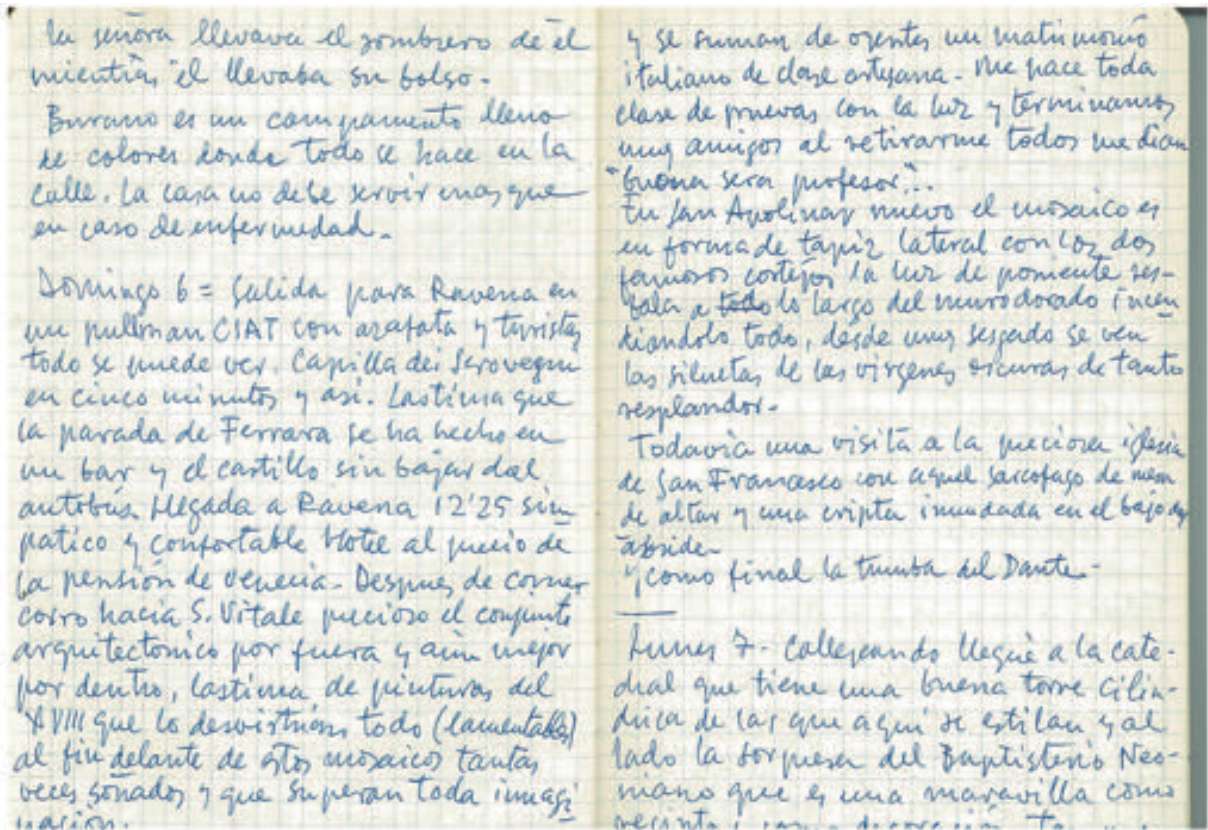 la señora llevava el sombrero de él
mientras él llevaba su bolso.
Burano es un campamento lleno
de colores donde todo se hace en la
calle. La casa no debe servir mas que
en caso de enfermedad.
Domingo 6 = Salida para Ravena en
un pullman CIAT con azafata y turistas
todo se puede ver. Capilla dei Scrovegni
en cinco minutos y asi. Lastima que
la parada de Ferrara se ha hecho en
un bar y el castillo sin bajar del
autobús. Llegada a Ravena 12'25 sim
patico y confortable Hotel al precio de
la pensión de Venecia. Despues de comer
corro hacia S. Vitale precioso el conjunto
arquitectonico por fuera y aún mejor
por dentro, lastima de pinturas del
XVIII que lo desvirtuan todo (lamentable)
al fin delante de estos mosaicos tantas
veces soñados y que superan toda imagi
nación.
y se suman de oyentes un matrimonio
italiano de clase artesana. Me hace toda
clase de pruevas con la luz y terminamos
muy amigos al retirarme todos me dicen
"buona sera profesor"..
En San Apolinar nuevo el mosaico es
en forma de tapiz lateral con los dos
famosos cortejos la luz de poniente res-
bala a todo lo largo del muro dorado incen
diandolo todo, desde muy sesgado se ven
las siluetas de las virgenes oscuras de tanto
resplandor.
Todavia una visita a la preciosa iglesia
de San Francesco con aquel sarcofago de mesa
de altar y una cripta inundada en el bajo del
abside.
y como final la tumba del Dante.
Lunes 7. Callejeando llegué a la cate-
dral que tiene una buena torre cilin-
drica de las que aqui se estilan y al
lado la sorpresa del Baptisterio Neo-
niano que es una maravilla como
recinto y como decoración